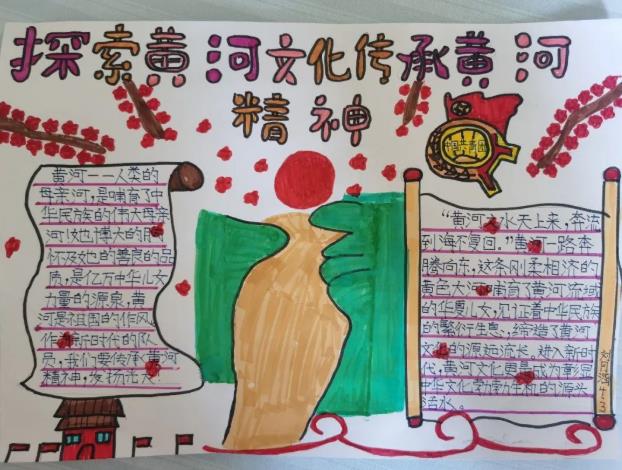 探索黄河文化传承黄河
精神
黄河一一人类的
母亲河,是哺育了中
华民族的伟大母亲
河!她博大的胸
怀及她的善良的品
质,是亿万中华儿女
力量的源泉,黄
河是祖国的作风,
作为新时代的队
员,我们要传承黄河
精神,发扬光大!
中国共青团
“黄河之水天上来,奔流
到海不复回。”黄河一路奔
腾向东,这条刚柔相济的
黄色大河哺育了黄河流域
的华夏儿女,见证着中华民族
的繁衍生息,缔造了黄河
文化的源远流长。进入新时
代,黄河文化更是成为彰显
中华文化勃勃生机的源头
活水。
4.3